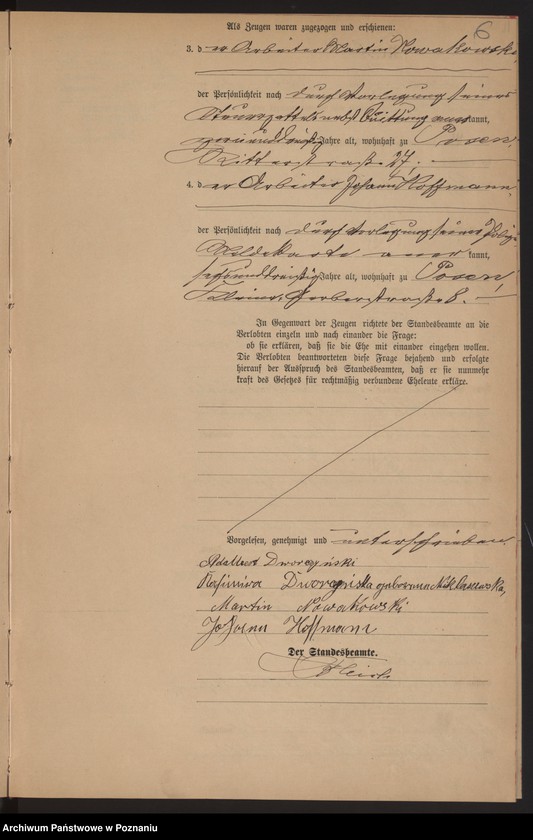 6
Als Zeugen waren zugezogen und erschienen:
3. der Arbeiter Martin Nowakowski,
der Persönlichkeit nach durch Vorlegung seines
Steuerzettels nebst Quittung anerkannt,
Jahre alt, wohnhaft zu Posen,
Ritterstraße 27.
4. der Arbeiter Johann Hoffmann,
der Persönlichkeit nach durch Vorlegung seiner
Meldekarte anerkannt,
sechsunddreißig Jahre alt, wohnhaft zu Posen,
Kleine Gerberstraße 8.
In Gegenwart der Zeugen richtete der Standesbeamte an die
Verlobten einzeln und nach einander die Frage:
ob sie erklären, daß sie die Ehe mit einander eingehen wollen.
Die Verlobten beantworteten diese Frage bejahend und erfolgte
hierauf der Ausspruch des Standesbeamten, daß er sie nunmehr
kraft des Gesetzes für rechtmäßig verbundene Eheleute erkläre.
Vorgelesen, genehmigt und unterschrieben
Adalbert Dworczyński
Kasimira Dworczyńska geborene Niklaszewska,
Martin Nowakowski
Johann Hoffmann
Der Standesbeamte.
Archiwum Państwowe w Poznaniu